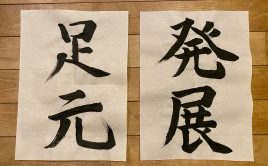 発展
足元